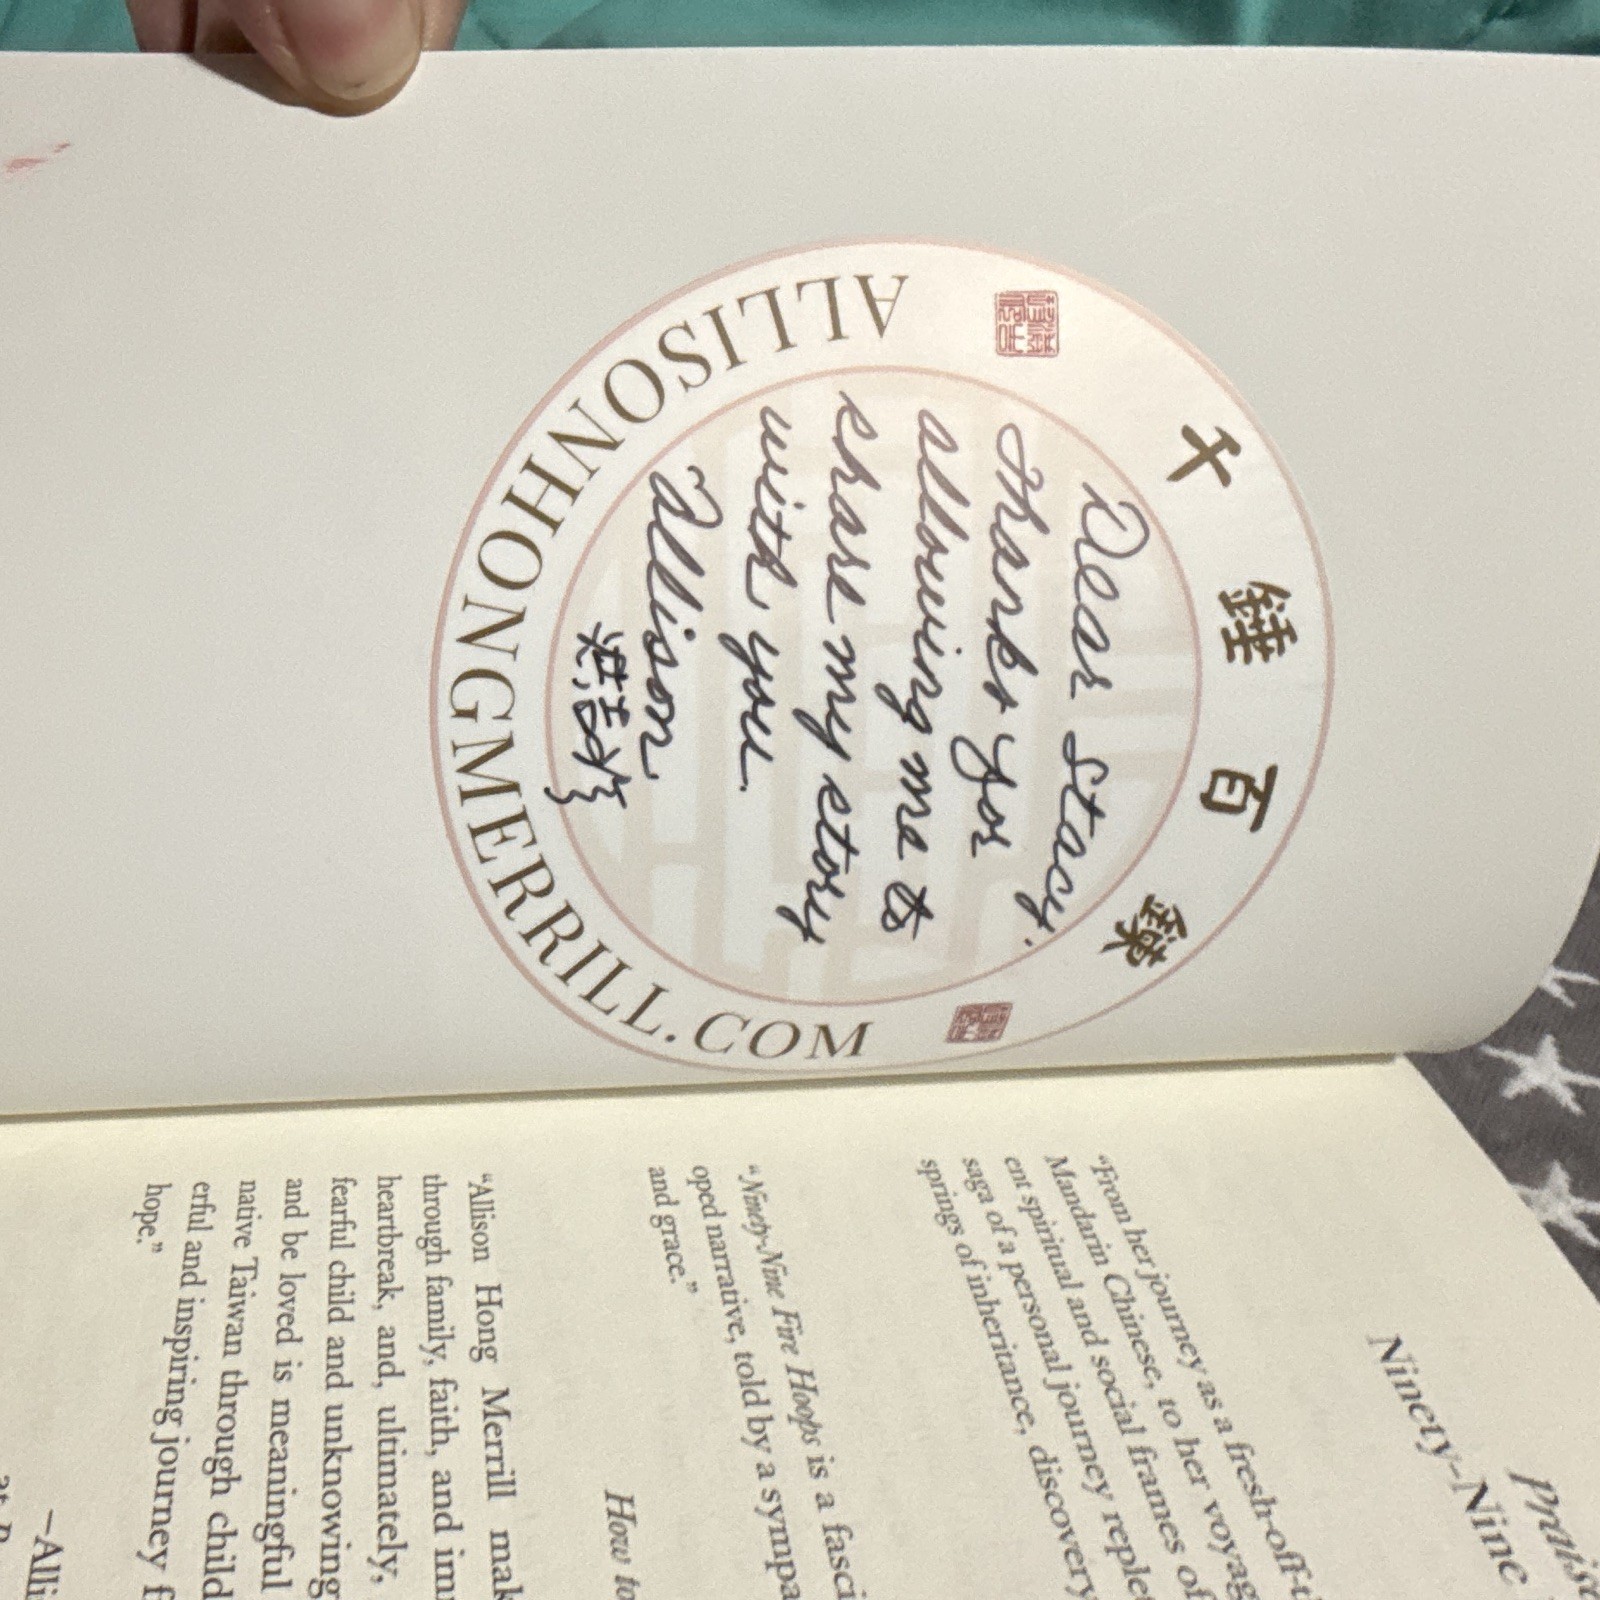 千錘百鍊
Dear Stacy.
Thanks for
allowing me to
share my story
with you.
Allison
洪
ALLISONHONGMERRILL.COM
Praise
Ninety-Nine
“From her journey as a fresh-off-t
Mandarin Chinese, to her voyag
ent spiritual and social frames of
saga of a personal journey replet
springs of inheritance, discovery
“Ninety-Nine Fire Hoops is a fasci
oped narrative, told by a sympa
and grace.”
How to
“Allison Hong Merrill mak
through family, faith, and im
heartbreak, and, ultimately,
fearful child and unknowing
and be loved is meaningful
native Taiwan through child
erful and inspiring journey f
hope.”
—Alli